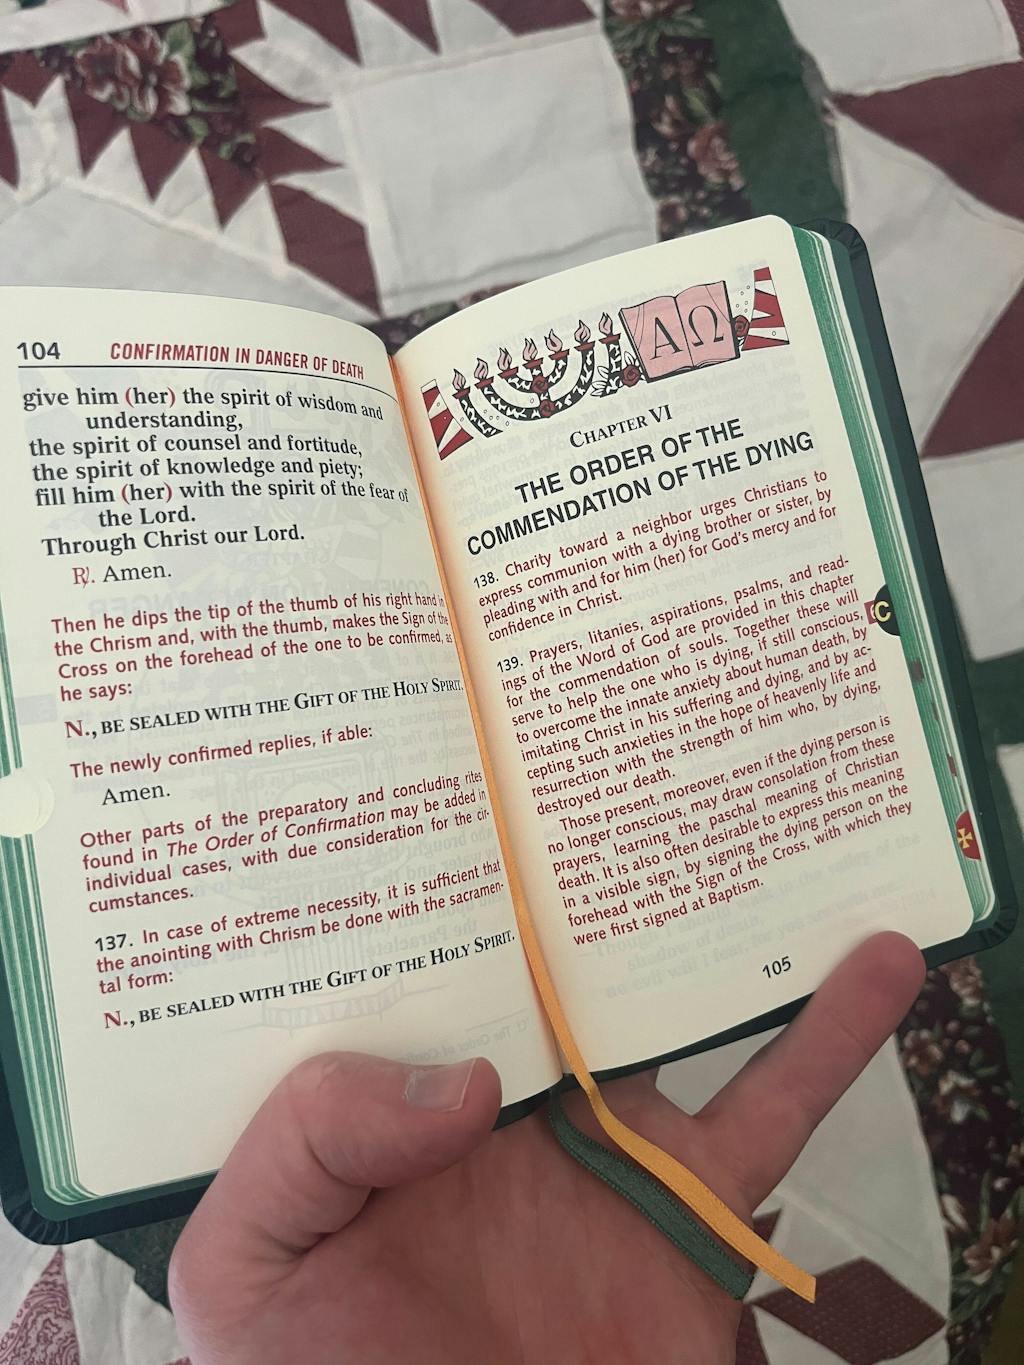 104 CONFIRMATION IN DANGER OF DEATH
give him (her) the spirit of wisdom and
understanding,
the spirit of counsel and fortitude,
the spirit of knowledge and piety;
fill him (her) with the spirit of the fear of
the Lord.
Through Christ our Lord.
℟. Amen.
Then he dips the tip of the thumb of his right hand in
the Chrism and, with the thumb, makes the Sign of the
Cross on the forehead of the one to be confirmed, as
he says:
N., BE SEALED WITH THE GIFT OF THE HOLY SPIRIT.
The newly confirmed replies, if able:
Amen.
Other parts of the preparatory and concluding rites
found in The Order of Confirmation may be added in
individual cases, with due consideration for the cir-
cumstances.
137. In case of extreme necessity, it is sufficient that
the anointing with Chrism be done with the sacramen-
tal form:
N., BE SEALED WITH THE GIFT OF THE HOLY SPIRIT.
Α Ω
CHAPTER VI
THE ORDER OF THE
COMMENDATION OF THE DYING
138. Charity toward a neighbor urges Christians to
express communion with a dying brother or sister, by
pleading with and for him (her) for God's mercy and for
confidence in Christ.
139. Prayers, litanies, aspirations, psalms, and read-
ings of the Word of God are provided in this chapter
for the commendation of souls. Together these will
serve to help the one who is dying, if still conscious,
to overcome the innate anxiety about human death, by
imitating Christ in his suffering and dying, and by ac-
cepting such anxieties in the hope of heavenly life and
resurrection with the strength of him who, by dying,
destroyed our death.
Those present, moreover, even if the dying person is
no longer conscious, may draw consolation from these
prayers, learning the paschal meaning of Christian
death. It is also often desirable to express this meaning
in a visible sign, by signing the dying person on the
forehead with the Sign of the Cross, with which they
were first signed at Baptism.
105
C